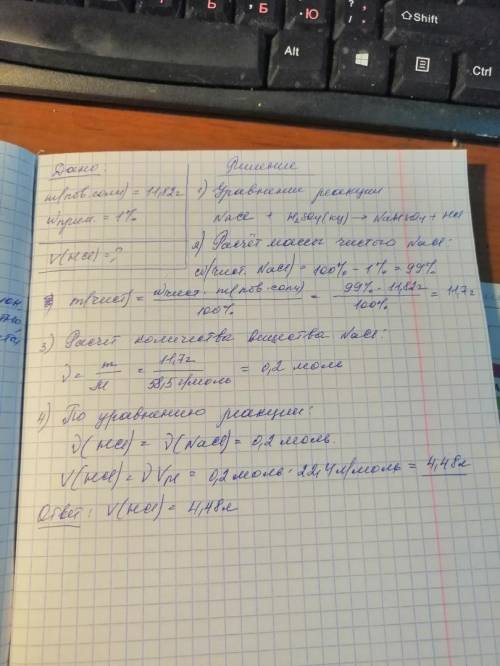 Ь Б Ю ? , /
⇧Shift
Alt
Ctrl
Дано
Решение
m(пов.соли) = 11,82г
1) Уравнение реакции
ωприм. = 1%
NaCl + H₂SO₄(ку) → NaHSO₄ + HCl
V(HCl) = ?
2) Расчёт массы чистого NaCl:
ω(чист. NaCl) = 100% - 1% = 99%
m(чист) = ωчист. · m(пов.соли) / 100% = 99% · 11,82г / 100% = 11,7г
3) Расчет количества вещества NaCl:
ν = m / M = 11,7г / 58,5г/моль = 0,2 моль
4) По уравнению реакции:
ν(HCl) = ν(NaCl) = 0,2 моль.
V(HCl) = ν Vм = 0,2 моль · 22,4л/моль = 4,48л
Ответ: V(HCl) = 4,48л